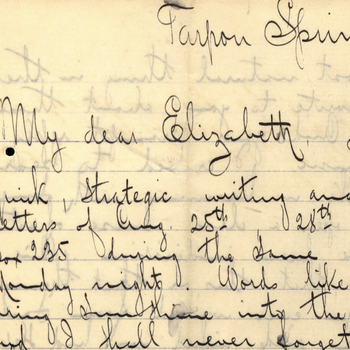 Tarpon Sprin
My dear Elizabeth,
quick, strategic writing and
letters of Aug. 25th 28th
Box 235 during the same
Monday night. Words like
bring sunshine into the
and I shall never forget